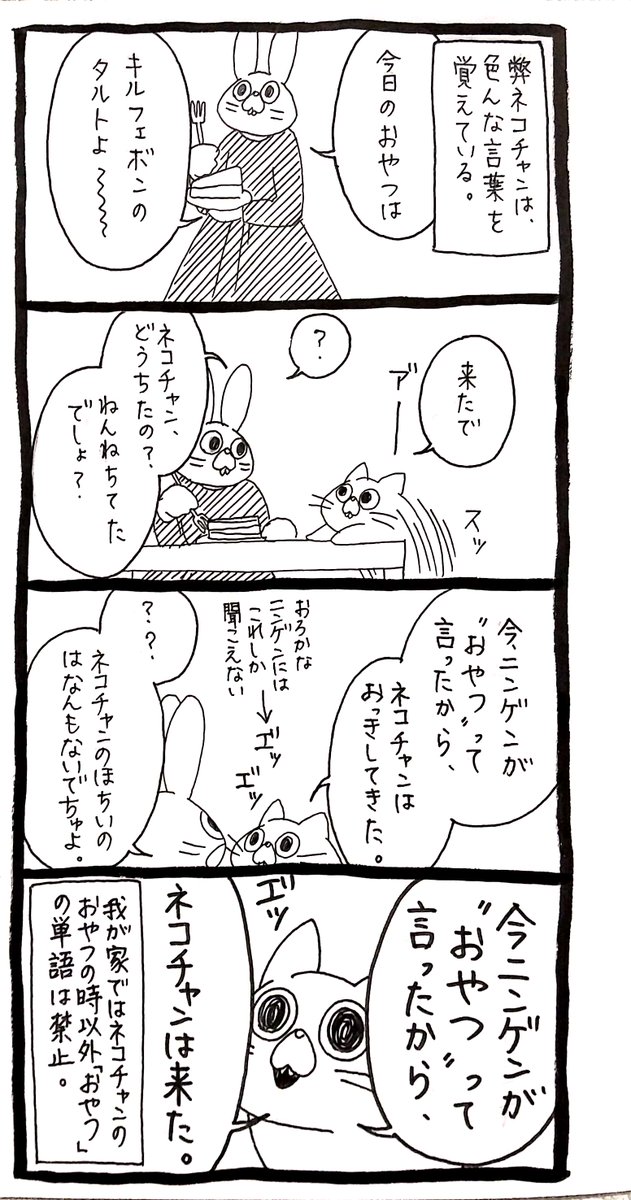 弊ネコチャンは、
色んな言葉を
覚えている。
今日のおやつは
キルフェボンの
タルトよ〜〜〜
来たで
ア゛ー
スッ
?
ネコチャン、
どうちたの?
ねんねちてた
でしょ?
今、ニンゲンが
〝おやつ〟って
言ったから、
ネコチャンは
おっきしてきた。
おろかな
ニンゲンには
これしか
聞こえない
→エ゛ッ
エ゛ッ
??
ネコチャンのほちいの
はなんもないでちゅよ。
今ニンゲンが
〝おやつ〟って
言ったから、
エ゛ッ
ネコチャンは来た。
我が家ではネコチャンの
おやつの時以外「おやつ」
の単語は禁止。